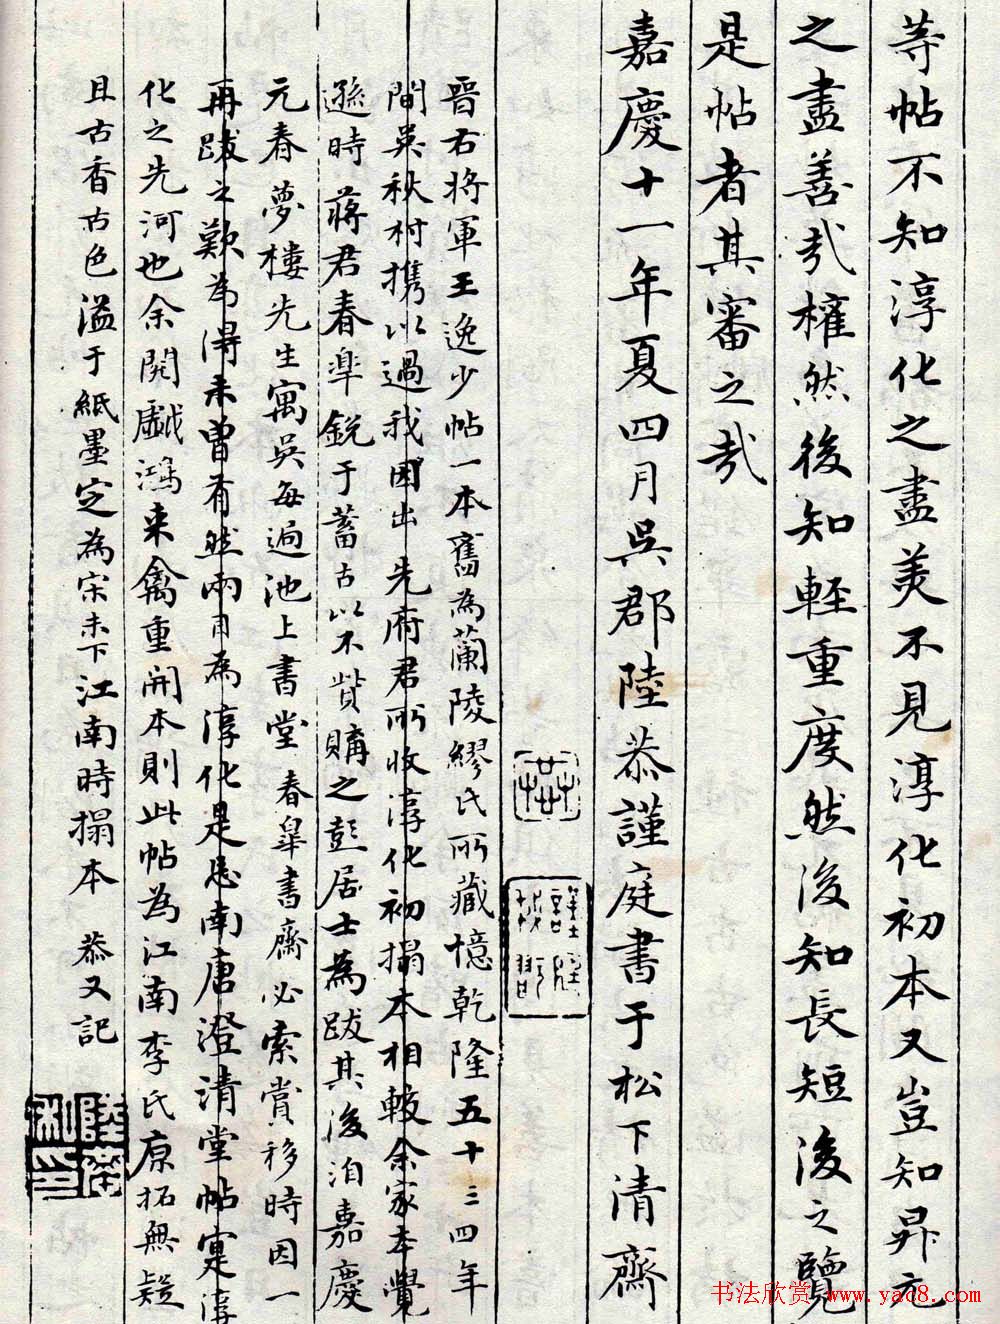 等帖不知淳化之盡美不見淳化初本又豈知昇元
之盡善哉權然後知輕重度然後知長短後之覽
是帖者其審之哉
嘉慶十一年夏四月吳郡陸恭謹庭書于松下清齋
晉右將軍王逸少帖一本舊為蘭陵繆氏所藏憶乾隆五十三四年
間吳秋村攜以過我因出先府君所收淳化初搨本相較余家本覺
遜時蔣君春皋銳于蓄古以不貲購之彭居士為跋其後洎嘉慶
元春夢樓先生寓吳每過池上書堂春皋書齋必索賞移時因一
再跋之歎為得未曾有然兩目為淳化是忘南唐澄清堂帖寔淳
化之先河也余閱戲鴻來禽重開本則此帖為江南李氏原拓無疑
且古香古色溢于紙墨定為宋未下江南時搨本 恭又記
陸恭私印
书法欣赏 www.yac8.com